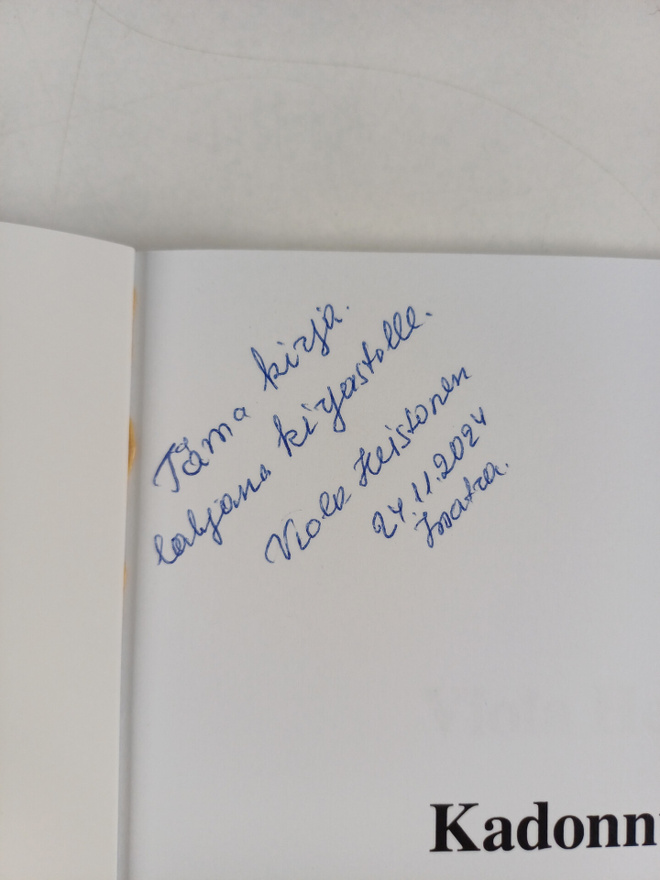 Tämä kirja.
lahjana kirjastolle.
Viola Heistonen
24.11.2024
Imatra.
Viola He
Kadonn